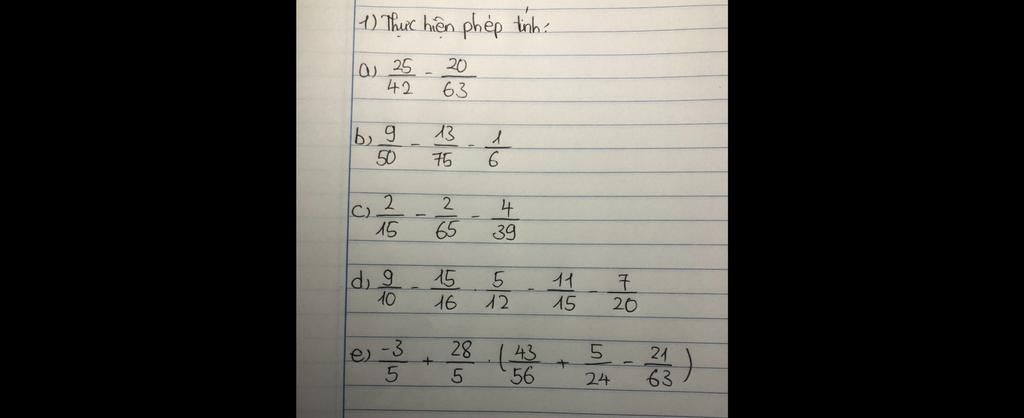 1) Thực hiện phép tính:
a) 25/42 - 20/63
b) 9/50 - 13/75 - 1/6
c) 2/15 - 2/65 - 4/39
d) 9/10 - 15/16 . 5/12 - 11/15 - 7/20
e) -3/5 + 28/5 . (43/56 + 5/24 - 21/63)